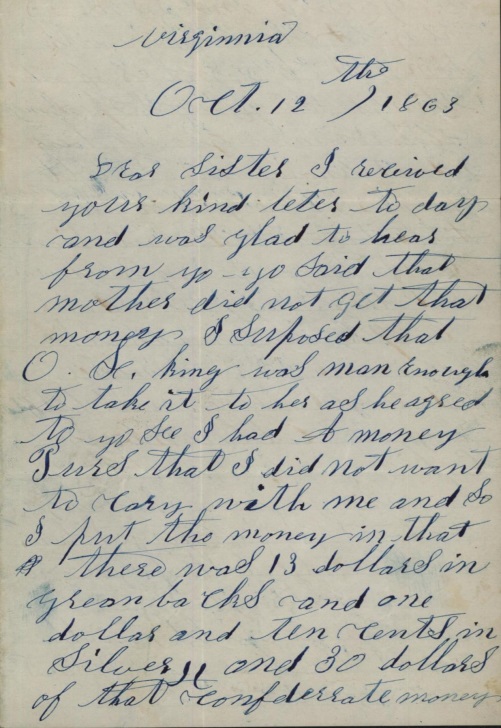 virginnia
Oct. 12 the / 1863
Dear Sister I recieved
your kind leter to day
and was glad to hear
from yo yo Said that
mother did not get that
money I Suposed that
O. king was man Enough
to take it to her as he agred
to yo See I had A money
Purs that I did not want
to cary with me and So
I put the money in that
there was 13 dollars in
greanbacks and one
dollar and ten cents in
Silver and 30 dollars
of that confderrate money